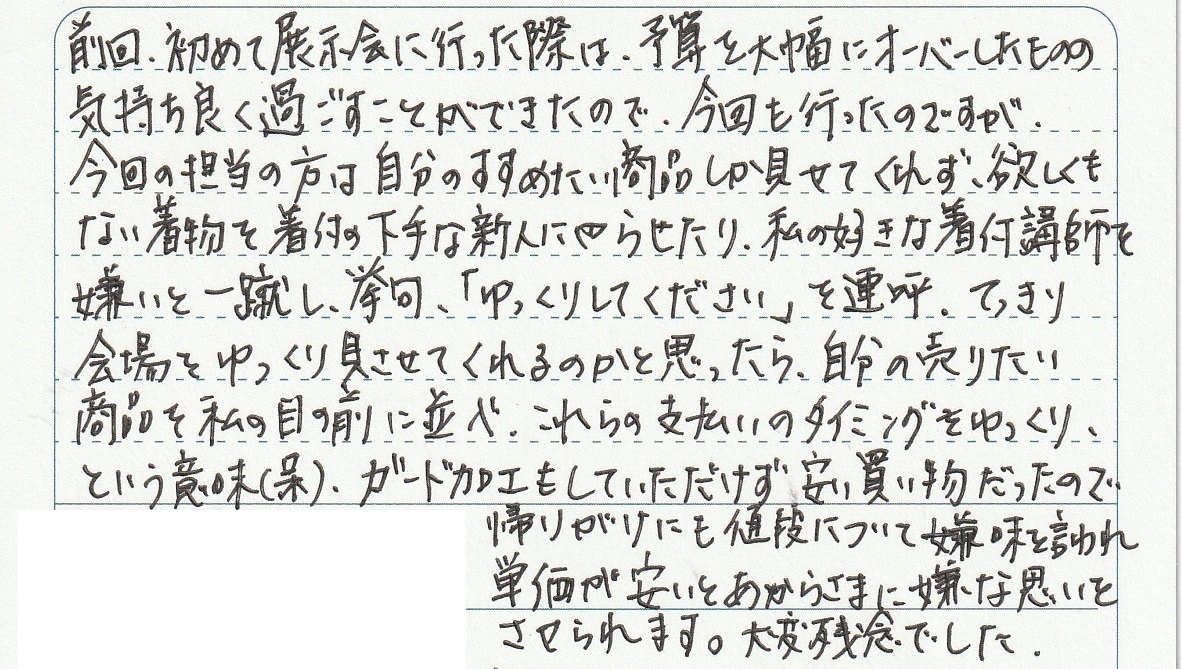 前回、初めて展示会に行った際は、予算を大幅にオーバーしたものの
気持ち良く過ごすことができたので、今回も行ったのですが、
今回の担当の方は自分のすすめたい商品しか見せてくれず、欲しくも
ない着物を着付の下手な新人にやらせたり、私の好きな着付講師を
嫌いと一蹴し、挙句、「ゆっくりしてください」を連呼、てっきり
会場をゆっくり見させてくれるのかと思ったら、自分の売りたい
商品を私の目の前に並べ、これらの支払いのタイミングをゆっくり、
という意味(呆)、ガード加工もしていただけず安い買い物だったので
帰りがけにも値段について嫌味を言われ
単価が安いとあからさまに嫌な思いを
させられます。大変残念でした。